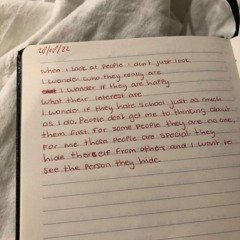 28/08/22
When I look at people I don't just look
I wonder who they really are
I wonder if they are happy
What their interest are
I wonder if they hate school just as much
as I do. People don't get me to thinking about
them fast. For some people they are no one,
For me these people are special. they
hide therself from others and I want to
see the person they hide.